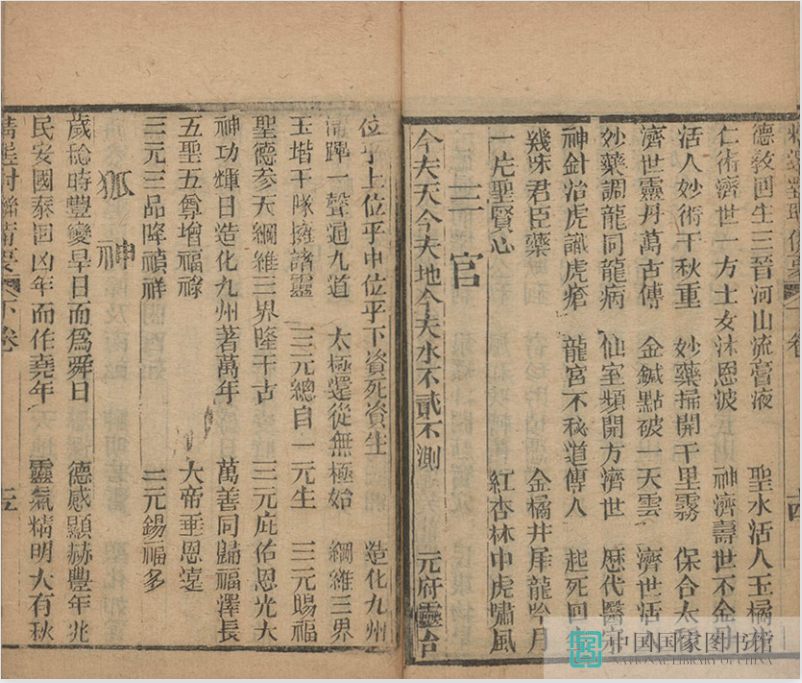 德敎回生三晉河山流膏液 聖水活人玉橘
仁術濟世一方士女沐恩波 神濟壽世不金
活人妙術千秋重 妙藥掃開千里霧 保合太
濟世靈丹萬古傳 金鍼點破一天雲 濟世活
妙藥調龍同龍病 仙室頻開方濟世 歷代醫
神針治虎識虎瘡 龍宮不秘道傳人 起死回
幾味君臣藥 金橘井岸龍吟月
一片聖賢心 紅杏林中虎嘯風
三官
今夫天今夫地今夫水不貳不測 元府靈台
位乎上位乎中位乎下資死資生 造化九州
清蹕一聲通九道 太極還從無極始 綱維三界
玉堦千隊擁諸靈 三元總自一元生 三元賜福
聖德參天綱維三界隆千古 三元庇佑恩光大
神功輝日造化九州著萬年 萬善同歸福澤長
五聖五尊增福祿 大帝垂恩遠
三元三品降禎祥 二元錫福多
狐神
歲稔時豐變旱日而爲舜日 德感顯赫豐年兆
民安國泰回凶年而作堯年 靈氣精明大有秋
精選對聯備要 下卷 五
中国国家图书馆
NATIONAL LIBRARY OF CHINA